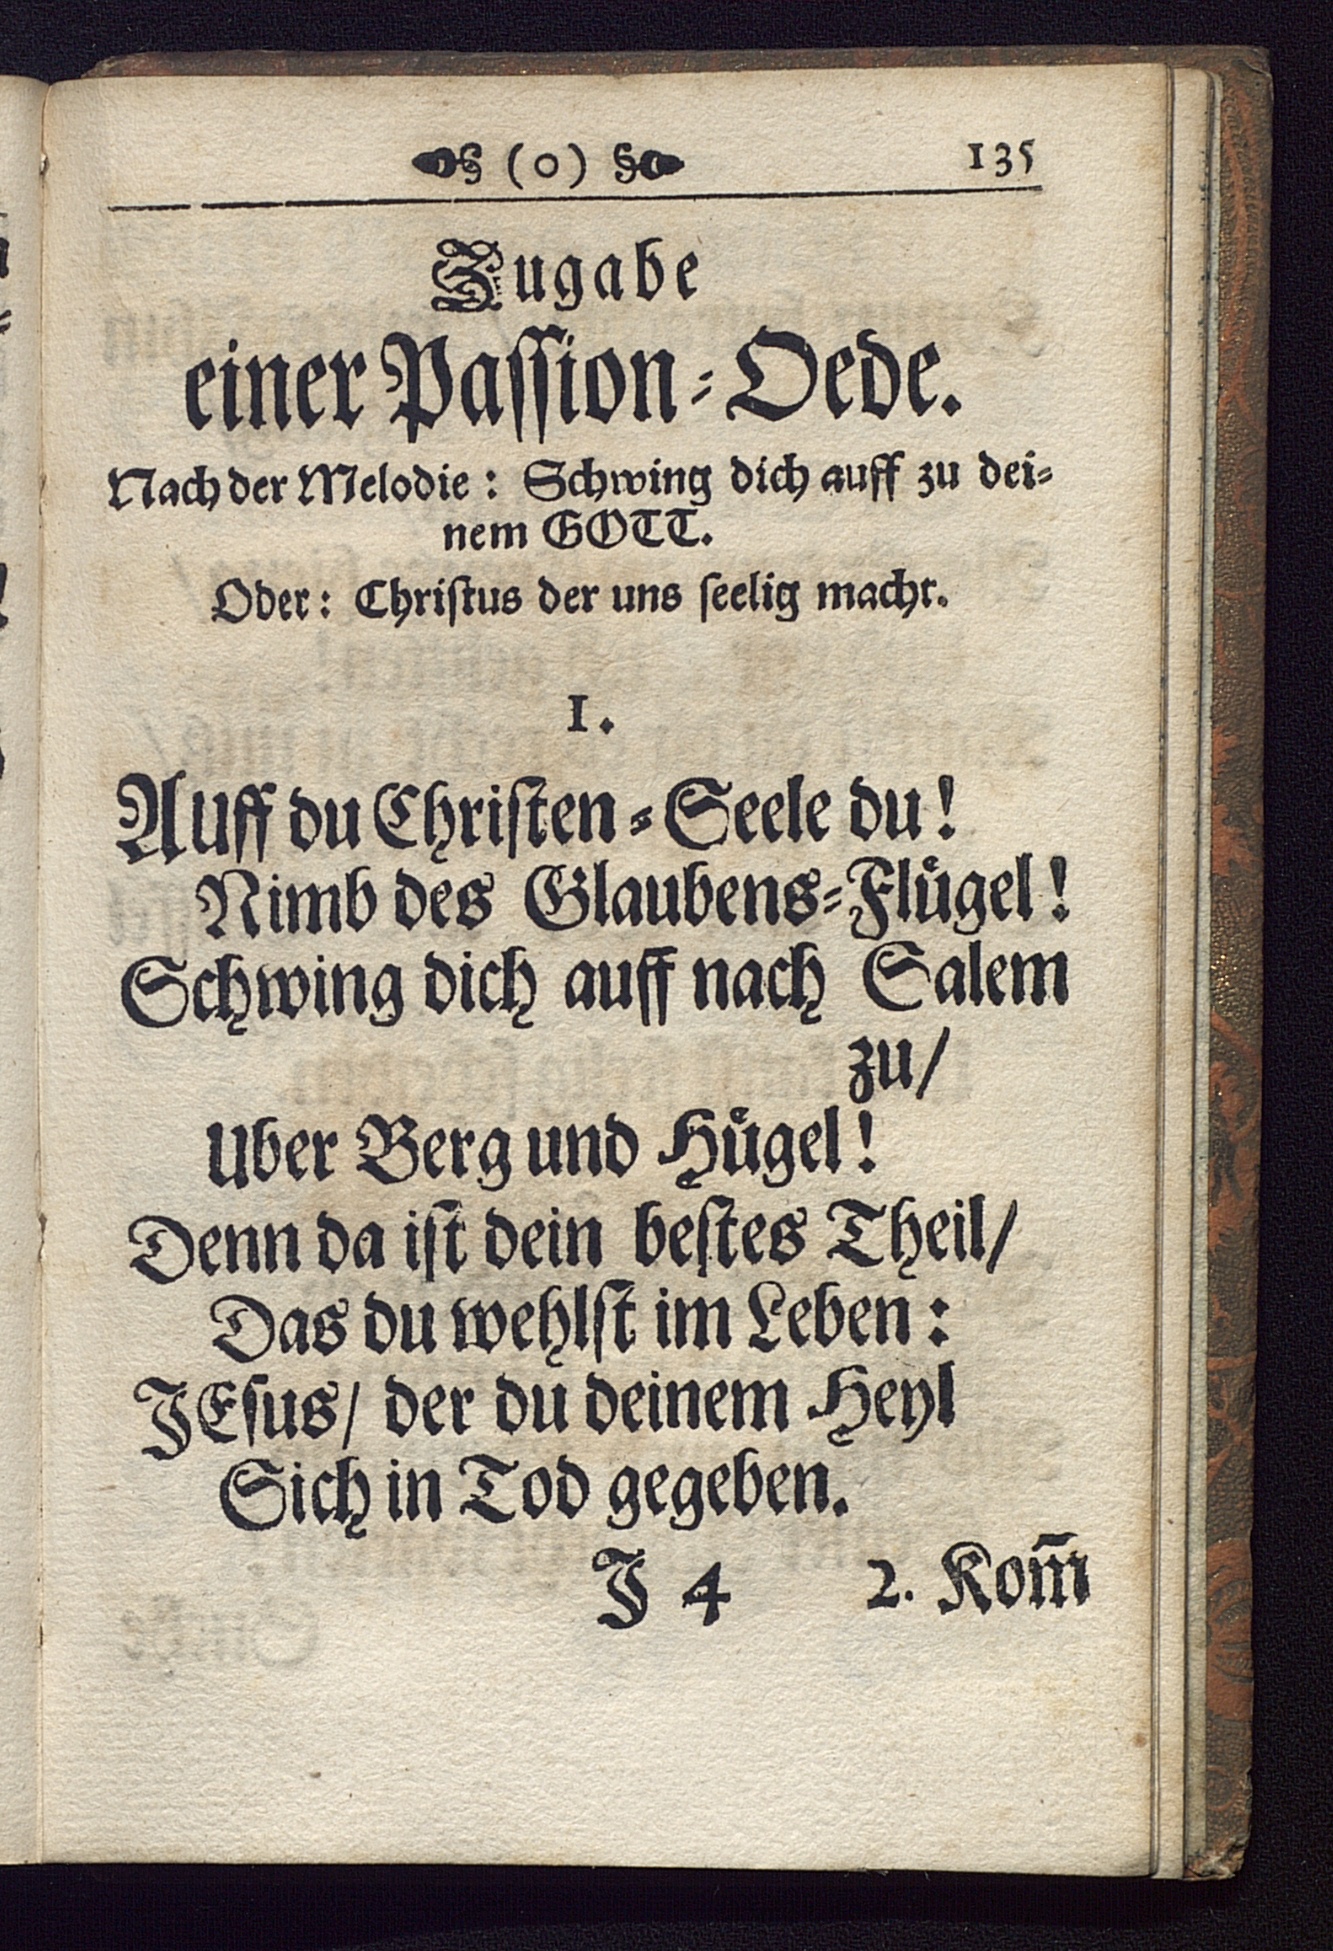 (0) 135
Zugabe
einer Passion-Oede.
Nach der Melodie: Schwing dich auff zu dei-
nem GOTT.
Oder: Christus der uns seelig macht.
1.
Auff du Christen-Seele du!
Nimb des Glaubens-Flügel!
Schwing dich auff nach Salem
zu/
Uber Berg und Hügel!
Denn da ist dein bestes Theil/
Das du wehlst im Leben:
JEsus/ der du deinem Heyl
Sich in Tod gegeben.
J 4 2. Kom̃